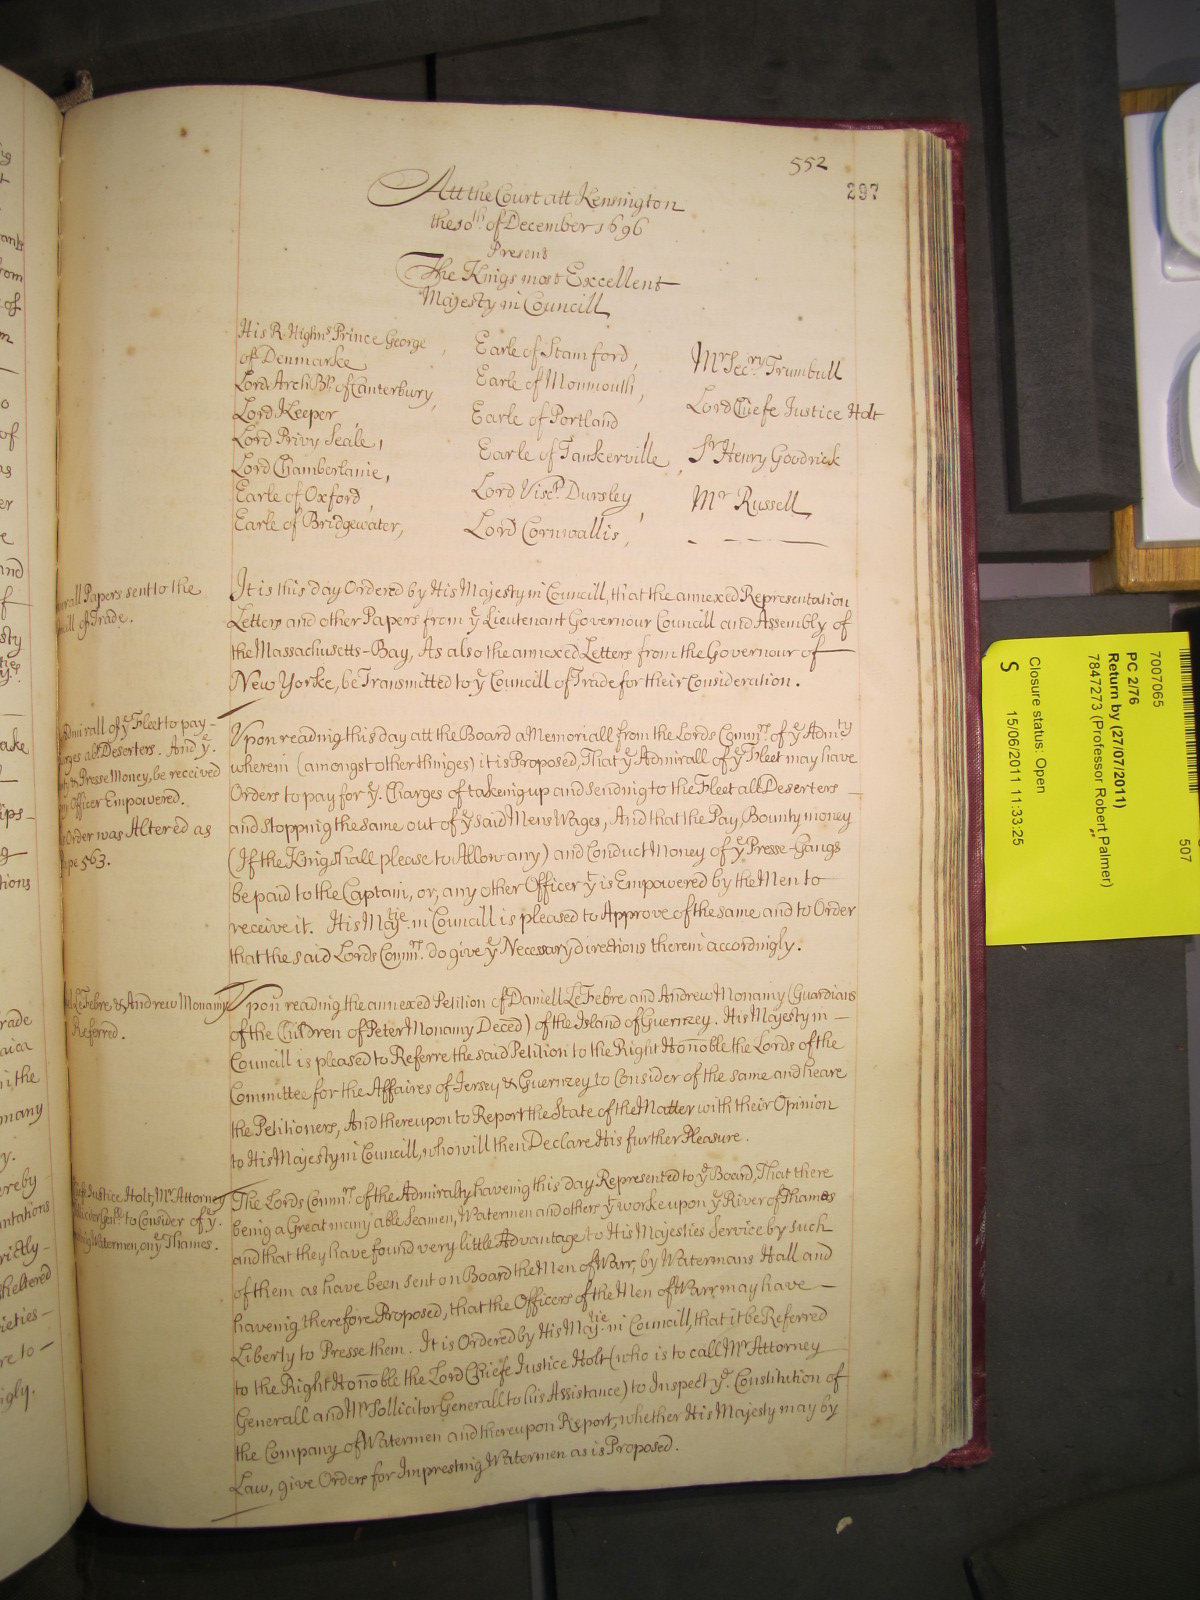 552
297
Att the Court att Kensington
the 10th. of December 1696
Present
The Kings most Excellent
Majesty in Councill
His R. Highns. Prince George
of Denmarke
Lord ArchBp. of Canterbury,
Lord Keeper
Lord Privy Seale,
Lord Chamberlaine,
Earle of Oxford,
Earle of Bridgewater,
Earle of Stamford,
Earle of Monmouth,
Earle of Portland
Earle of Tankerville,
Lord Visct. Dursley,
Lord Cornwallis,
Mr Secry Trumbull
Lord Cheife Justice Holt
Sr Henry Goodrick
Mr Russell
Papers sent to the
of Trade.
It is this day Ordered by His Majesty in Councill, that the annexed Representation
Letters and other Papers from ye Lieutenant Governour Councill and Assembly of
the Massachusetts-Bay, As also the annexed Letters from the Governour of
New Yorke, be Transmitted to ye Councill of Trade for their Consideration.
of ye Fleet to pay
abt. Deserters. And ye.
Presse Money, be received
Officer Empowered.
Order was Altered as
563.
Upon reading this day att the Board a Memoriall from the Lords Commrs. of ye Admty
wherein (amongst other thinges) it is Proposed, That ye Admirall of ye Fleet may have
Orders to pay for ye. Charges of takeing up and sending to the Fleet all Deserters
and stopping the same out of ye said Mens Wages, And that the Pay, Bounty money
(If the King shall please to Allow any) and Conduct Money of ye Presse-Gangs
be paid to the Captain, or, any other Officer yt is Empowered by the Men to
receive it. His Majtie. in Councill is pleased to Approve of the same and to Order
that the said Lords Commrs. do give ye Necessary directions therein accordingly.
LeFebre & Andrew Monamy
Referred.
Upon reading the annexed Petition of Daniell LeFebre and Andrew Monamy (Guardians
of the Children of Peter Monamy Deced) of the Island of Guernzey. His Majesty in
Councill is pleased to Referre the said Petition to the Right Honoble the Lords of the
Committee for the Affaires of Jersey & Guernzey to Consider of the same and heare
the Petitioners, And thereupon to Report the State of the Matter with their Opinion
to His Majesty in Councill, who will then Declare His further Pleasure.
Justice Holt, Mr. Attorney
to Consider of ye.
Watermen, on ye Thames.
The Lords Commrs. of the Admiralty having this day Represented to ye Board, That there
being a Great many able Seamen, Watermen and others yt worke upon ye River of Thames
and that they have found very little Advantage to His Majesties Service by such
of them as have been sent on Board the Men of Warr, by Watermans Hall and
haveing therefore Proposed, that the Officers of the Men of Warr may have
Liberty to Presse them. It is Ordered by His Majtie. in Councill, that it be Referred
to the Right Honoble the Lord Cheife Justice Holt (who is to call Mr Attorney
Generall and Mr Sollicitor Generall to his Assistance) to Inspect ye. Constitution of
the Company of Watermen and thereupon Report, whether His Majesty may by
Law, give Orders for Impresting Watermen as is Proposed.
7007065
507
PC 2/76
Return by (27/07/2011)
7847273 (Professor Robert Palmer)
Closure status: Open
S
15/06/2011 11:33:25